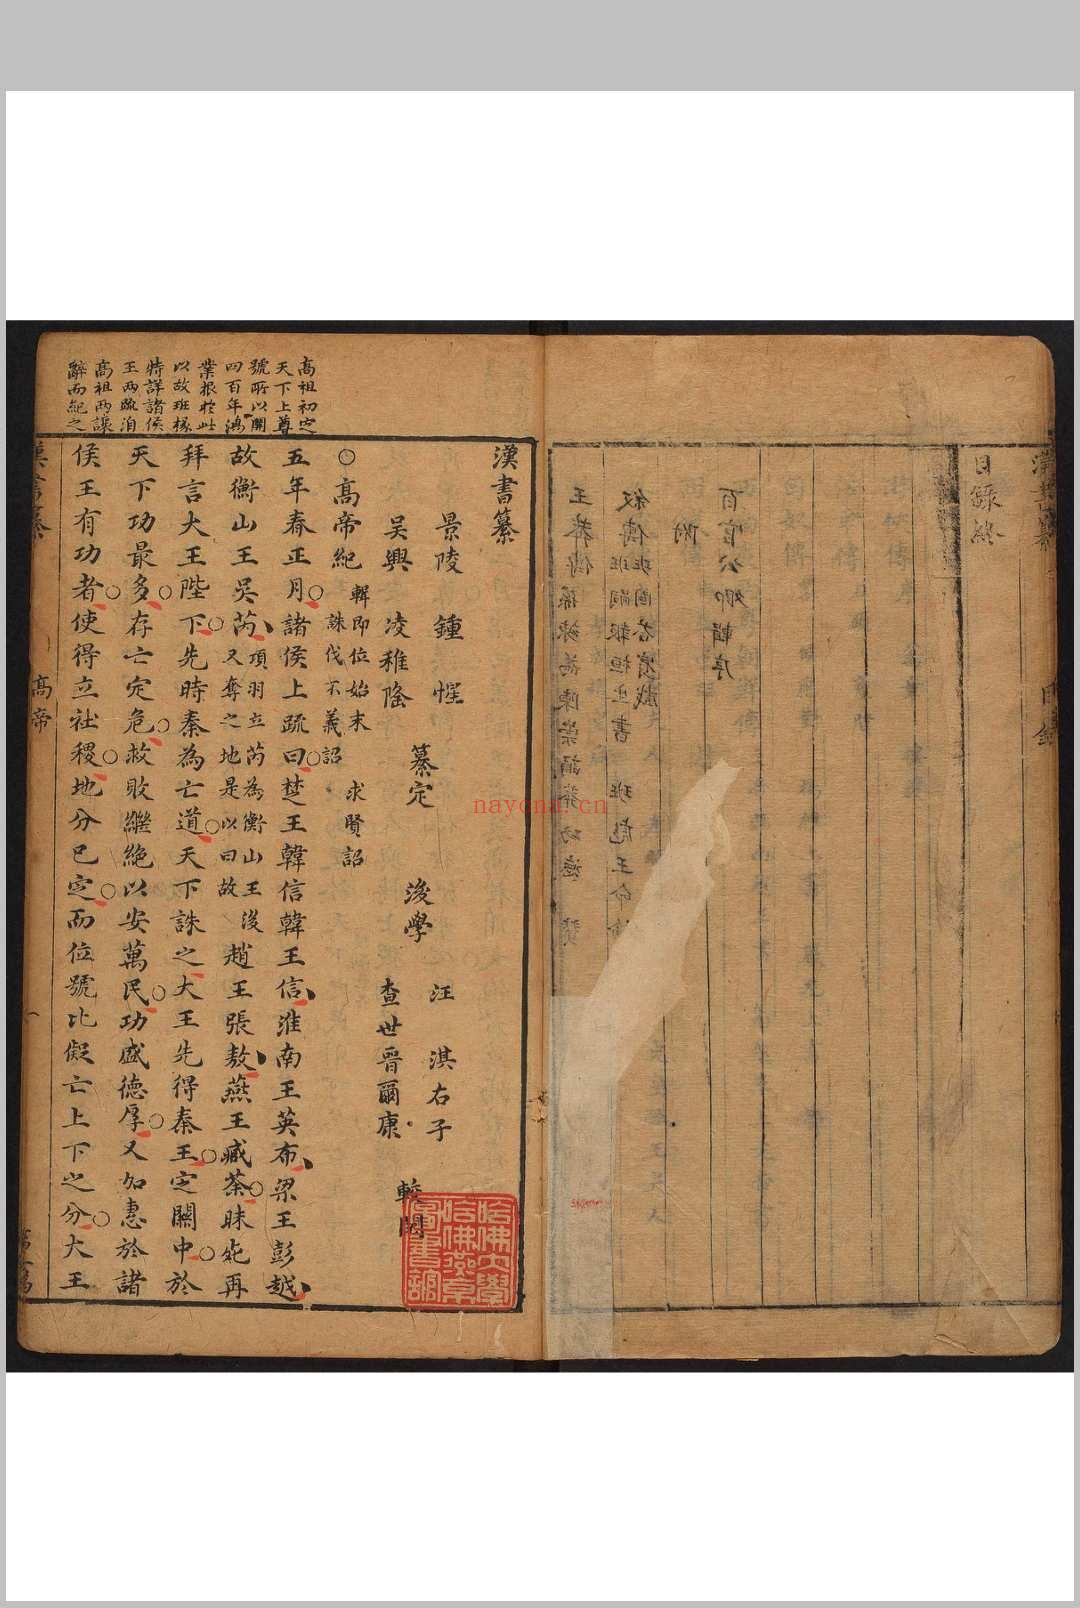 目錄終
百官公卿輯序
附
敘傳 班固荅賓戲
班嗣報桓生書 班彪王命
王莽傳 孫竦為陳崇誦莽功德
漢書纂
景陵 鍾惺
吳興 凌稚隆
纂定
後學
汪淇右子
查世晉爾康
較閱
○高帝紀 輯即位始末 求賢詔
誅伐不義詔
五年春正月諸侯上疏曰楚王韓信韓王信淮南王英布梁王彭越
故衡山王吳芮項羽立芮為衡山王後又奪之地是以曰故趙王張敖燕王臧荼昧死再
拜言大王陛下先時秦為亡道天下誅之大王先得秦王定關中於
天下功最多存亡定危救敗繼絕以安萬民功盛德厚又加惠於諸
侯王有功者使得立社稷地分已定而位號比儗亡上下之分大王
高祖初定
天下上尊
號所以開
四百年鴻
業根於此
以故班椽
特詳諸侯
王兩疏洎
高祖兩讓
辭而紀之
漢書纂
高帝
哈佛大學
哈佛燕京
圖書館
nayona.cn